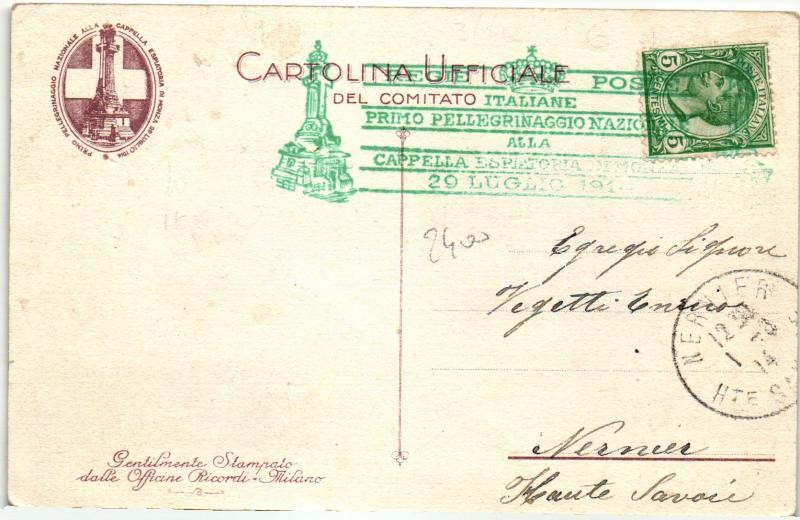 PRIMO PELLEGRINAGGIO NAZIONALE ALLA CAPPELLA ESPIATORIA DI MONZA 29 LUGLIO 1914
CARTOLINA UFFICIALE
DEL COMITATO
REGIE POSTE
ITALIANE
PRIMO PELLEGRINAGGIO NAZIO
ALLA
CAPPELLA ESPIATORIA DI MONZA
29 LUGLIO 191
POSTE ITALIANE
5 CENTESIMI 5
2400
Egregio Signore
Vegetti Enrico
NERNIER
12
1 14
HTE SA
Nernier
Haute Savoie
Gentilmente Stampato
dalle Officine Ricordi - Milano